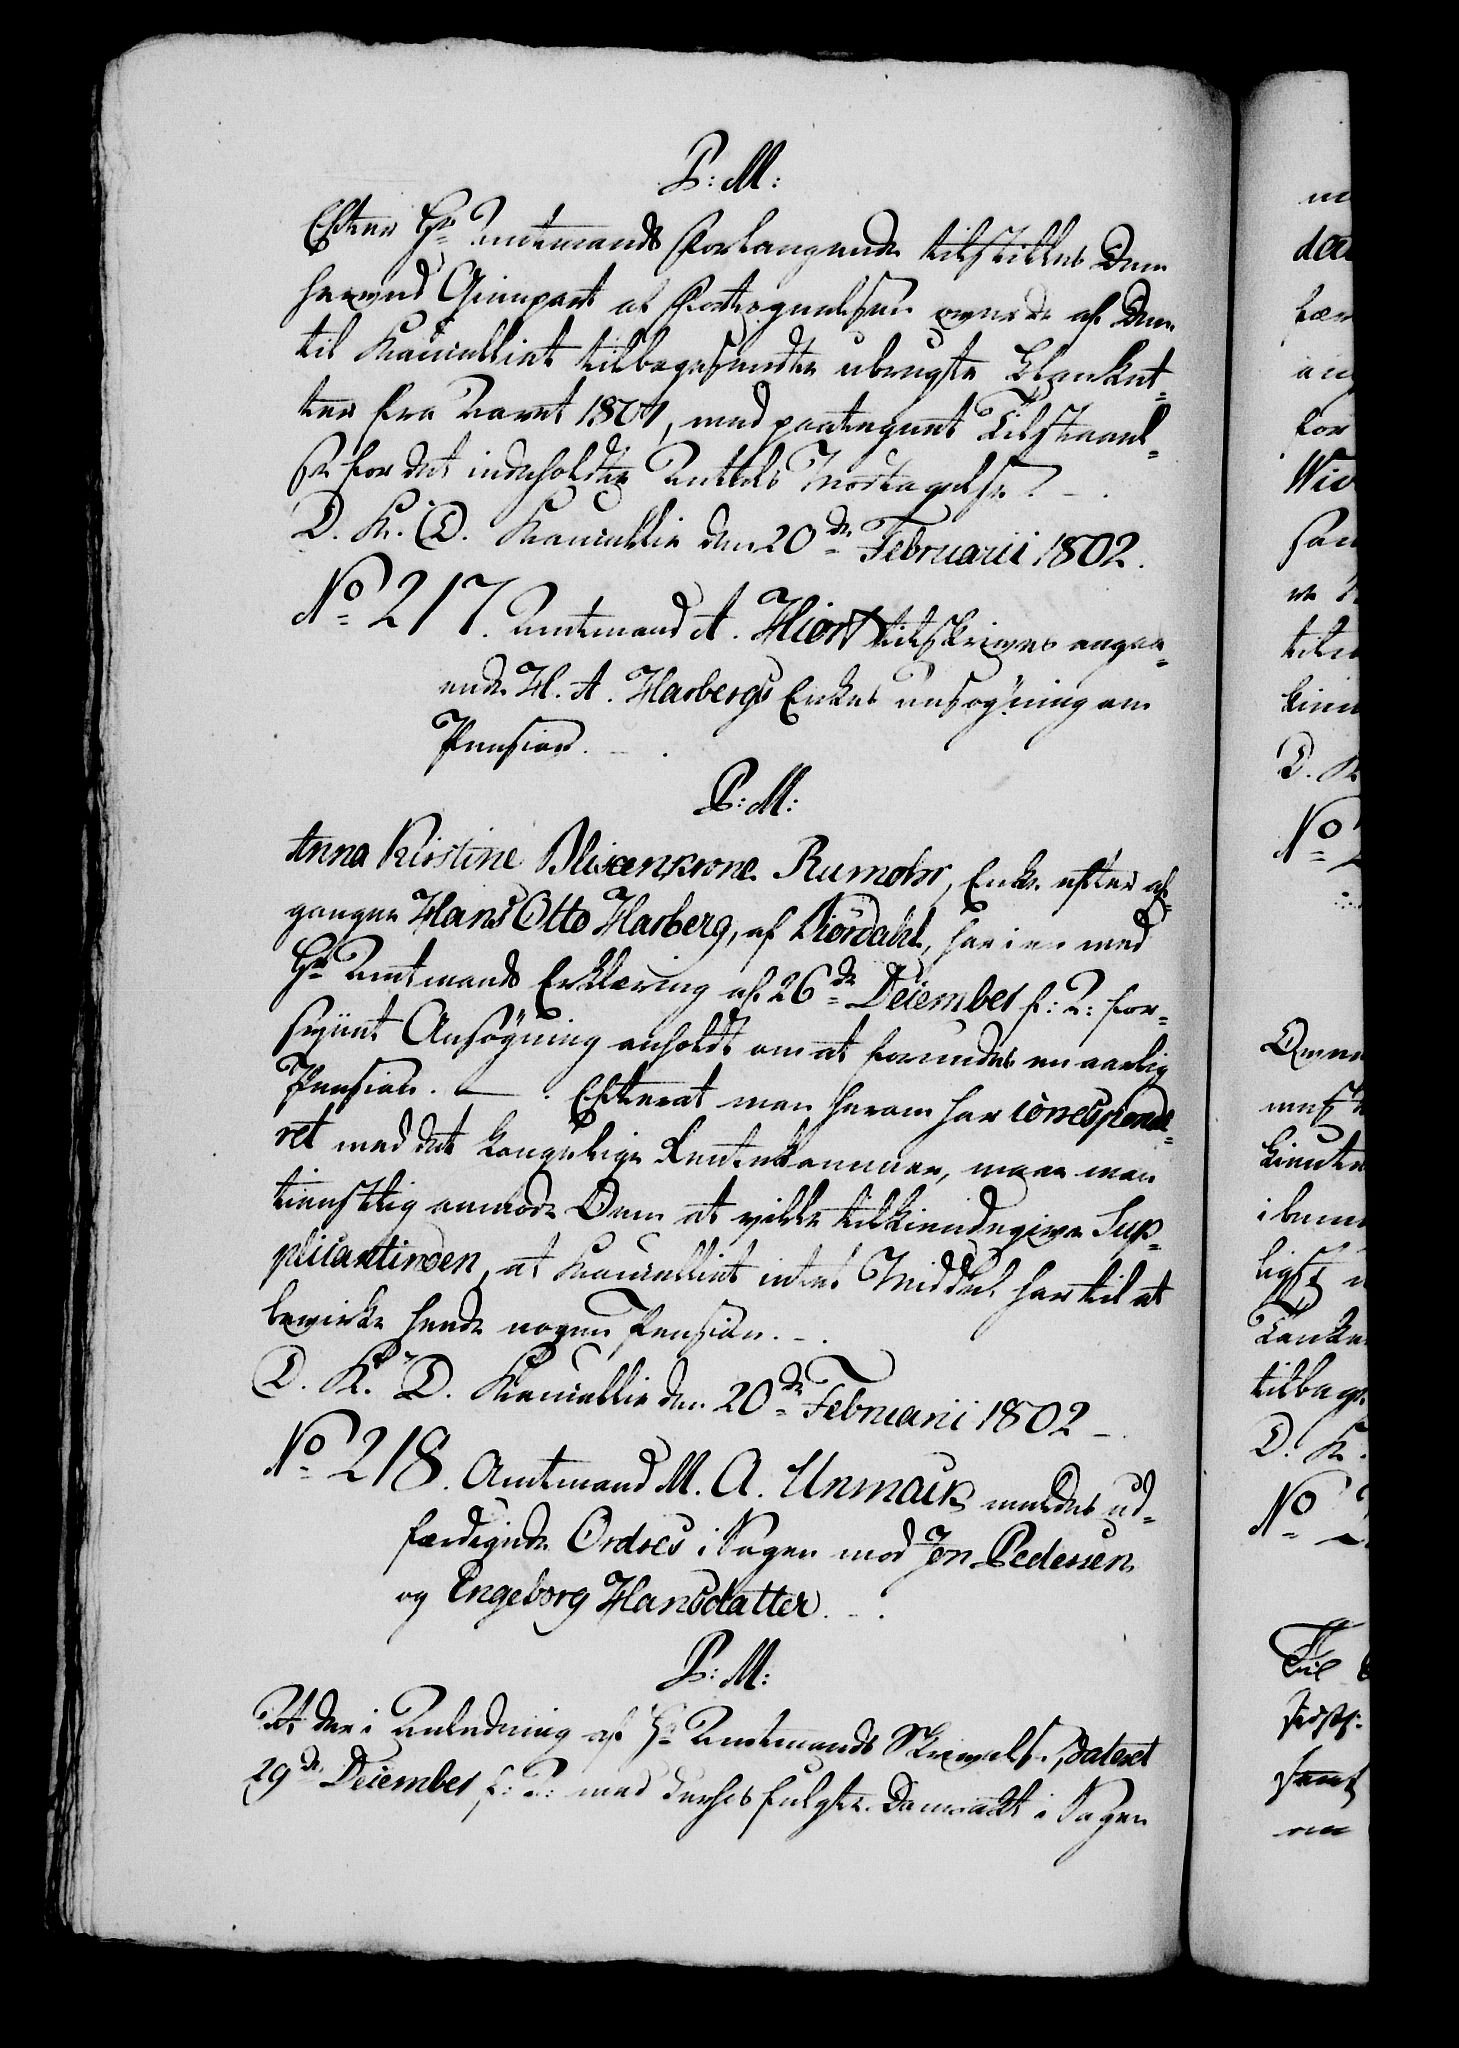 P: M:
Efter Hr Amtmands Forlangende tilstilles Dem
herved Gienpart af Fortegnelsen over de af Dem
til Kancelliet tilbagesendte ubrugte Blanket-
ter fra Aaret 1801, med paategnet Tilstaael-
se for det indeholdte Antals Modtagelse. –
D. K. D. Kancellie den 20de Februarii 1802.
No 217. Amtmand A. Hiort tilskrives angaa-
ende H. A. Harbergs Enkes Ansøgning om
Pension. –
P: M:
Anna Kirstine Blixenkrone Rumohr, Enke efter af-
gangne Hans Otto Harberg, af Biørdahl, har i en med
Hr Amtmands Erklæring af 26de December f: A: for-
synet Ansøgning anholdt om at forundes en aarlig
Pension. — . Efterat man herom har corresponde-
ret med det kongelige Rentekammer, maae man
tienstlig anmode Dem at ville tilkiendegive Sup-
plicantinden, at Kancelliet intet Middel har til at
bevirke hende nogen Pension. –.
D. K. D. Kancellie den 20de Februarii 1802 –
No 218. Amtmand M. A. Unmack meldes ud-
færdigede Ordres i Sagen mod Jon Pedersen
og Engeborg Hansdatter. – .
P: M:
At der i Anledning af Hr Amtmands Skrivelse, dateret
29de December f: A: med derhos fulgte Domsact i Sagen
No
D. K.
Tanke
tilbage
D. K.
No
Til
samt
om